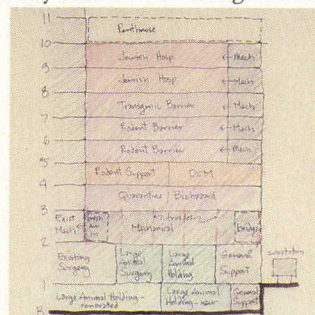 11
Penthouse
10
Jewish Hosp ← Mech
9
Jewish Hosp ← Mech
8
Transgenic Barrier ← Mech
7
Rodent Barrier ← Mech
6
Rodent Barrier ← Mech
5
Rodent Support DCM
4
Quarantine / Biohazard
3
Exist Mech
Mechanical
Bridge
2
Existing Surgery
Large Animal Surgery
Large Animal Holding
General Support
substation
1
Large Animal Holding - renovated
Large Animal Holding - new
General Support
B